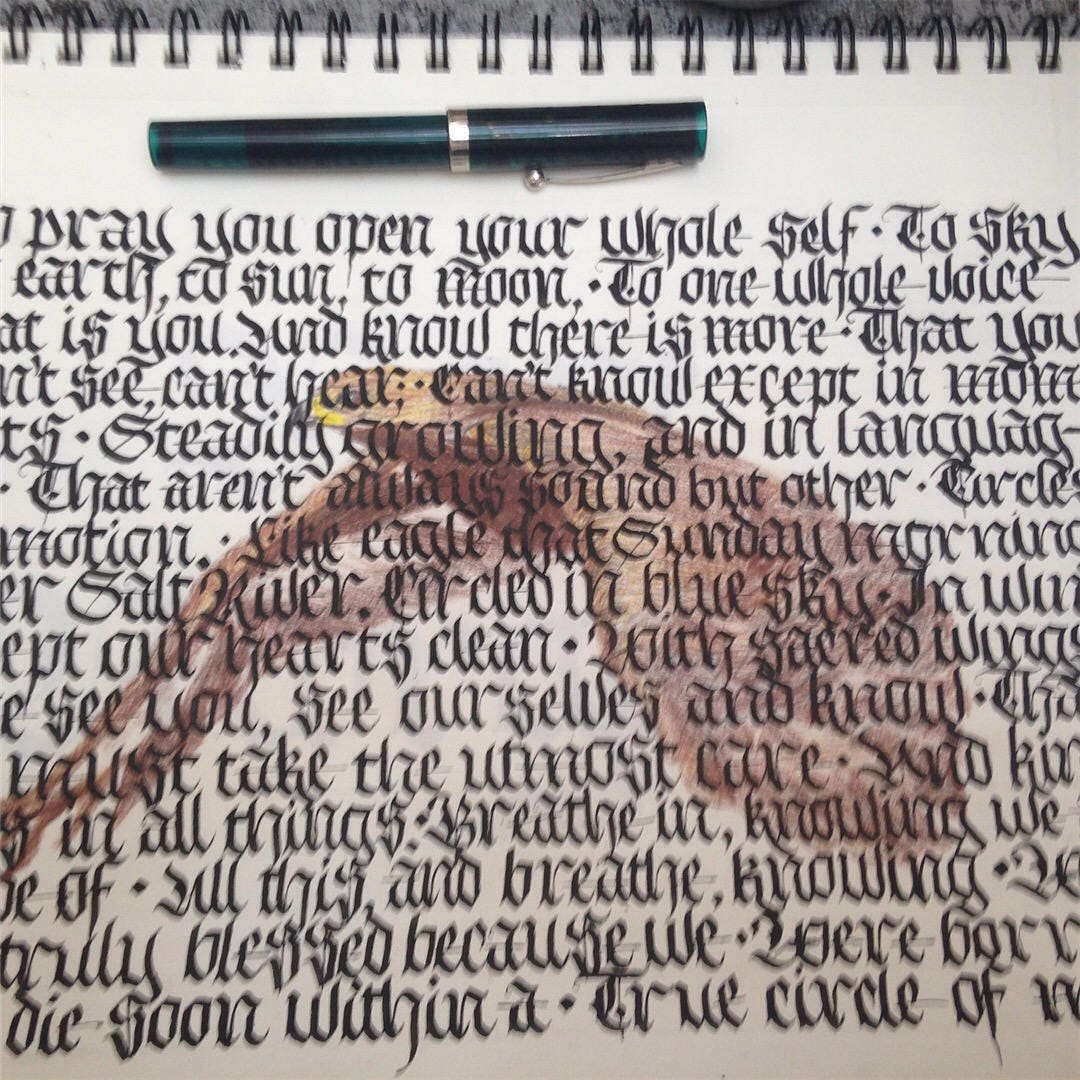 pray you open your whole self · To sky
earth, to sun, to moon, · To one whole voice
at is you. And know there is more · That you
n't see, can't hear; · Can't know except in mom
ts · Steadily growling, and in languag-
· That aren't always sound but other · Circles
motion. · Like eagle that Sunday morning
er Salt River. Circled in blue sky · In win
ept our hearts clean · With sacred wings
e see you, see ourselves and know · Tha
must take the utmost care · And kin
s in all things · Breathe in, knowing we
e of · All this, and breathe, knowing · We
truly blessed because we · Were born
die soon within a · True circle of